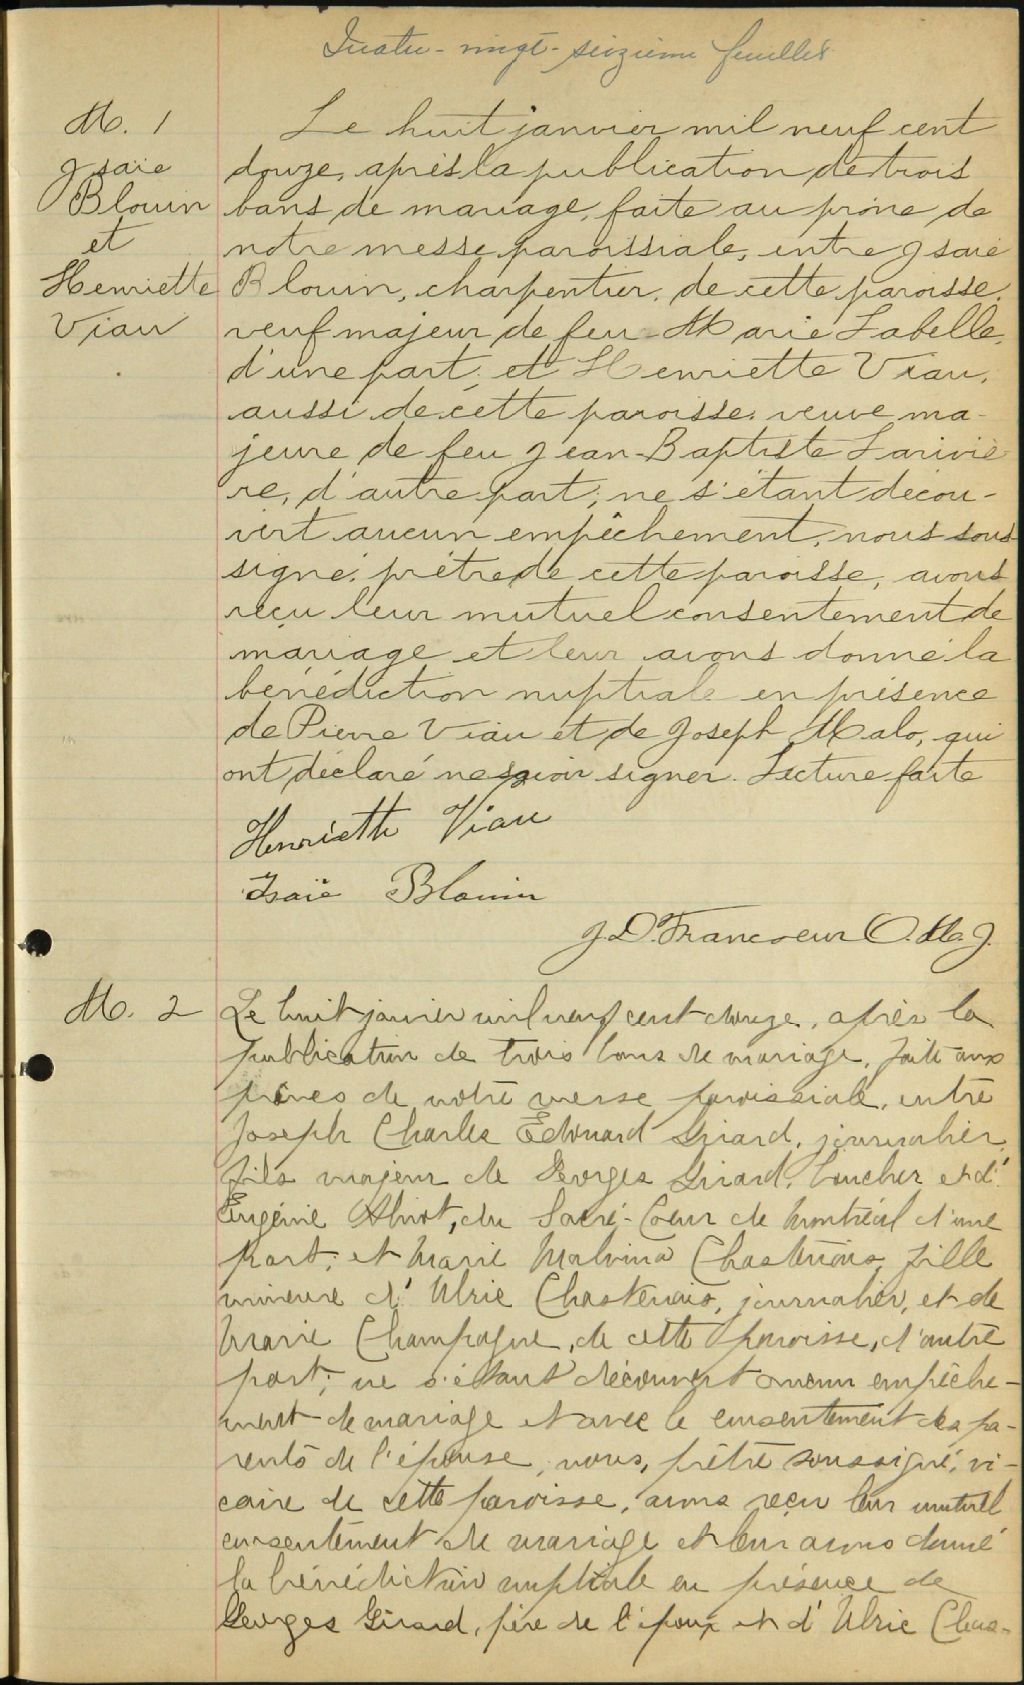 Quatre-vingt-seizième feuillet
M. 1
Isaïe
Blouin
et
Henriette
Viau
Le huit janvier mil neuf cent
douze, après la publication de trois
bans de mariage, faite au prône de
notre messe paroissiale, entre Isaïe
Blouin, charpentier, de cette paroisse,
veuf majeur de feu Marie Labelle,
d'une part; et Henriette Viau,
aussi de cette paroisse, veuve ma-
jeure de feu Jean-Baptiste Lariviè
re, d'autre part; ne s'étant décou-
vert aucun empêchement, nous sous
signé, prêtre de cette paroisse, avons
reçu leur mutuel consentement de
mariage et leur avons donné la
bénédiction nuptiale en présence
de Pierre Viau et de Joseph Malo, qui
ont déclaré ne savoir signer. Lecture faite
Henriette Viau
Isaïe Blouin
J.D. Francoeur O.M.J.
M. 2
Le huit janvier mil neuf cent douze, après la
publication de trois bans de mariage, faite aux
prônes de notre messe paroissiale, entre
Joseph Charles Edouard Girard, journalier,
fils majeur de Georges Girard, boucher et d'
Eugénie, du Sacré-Coeur de Montréal d'une
part; et Marie Malvina Chastenais, fille
mineure d'Ulric Chastenais, journalier, et de
Marie Champagne, de cette paroisse, d'autre
part; ne s'étant découvert aucun empêche-
ment de mariage et avec le consentement des pa-
rents de l'épouse, nous, prêtre soussigné, vi-
caire de cette paroisse, avons reçu leur mutuel
consentement de mariage et leur avons donné
la bénédiction nuptiale en présence de
Georges Girard, père de l'époux et d'Ulric Chas-